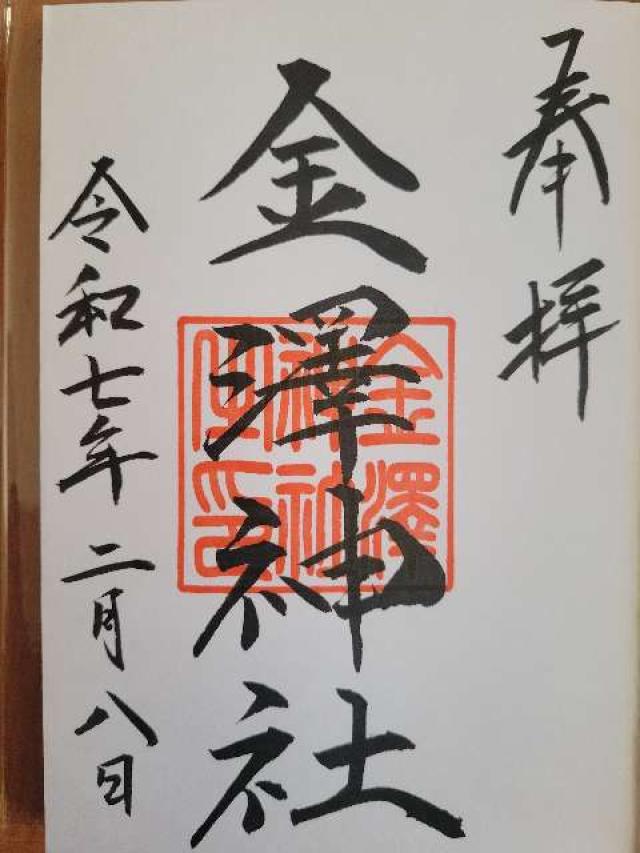 奉拝
金澤神社
金澤神社之印
令和七年二月八日